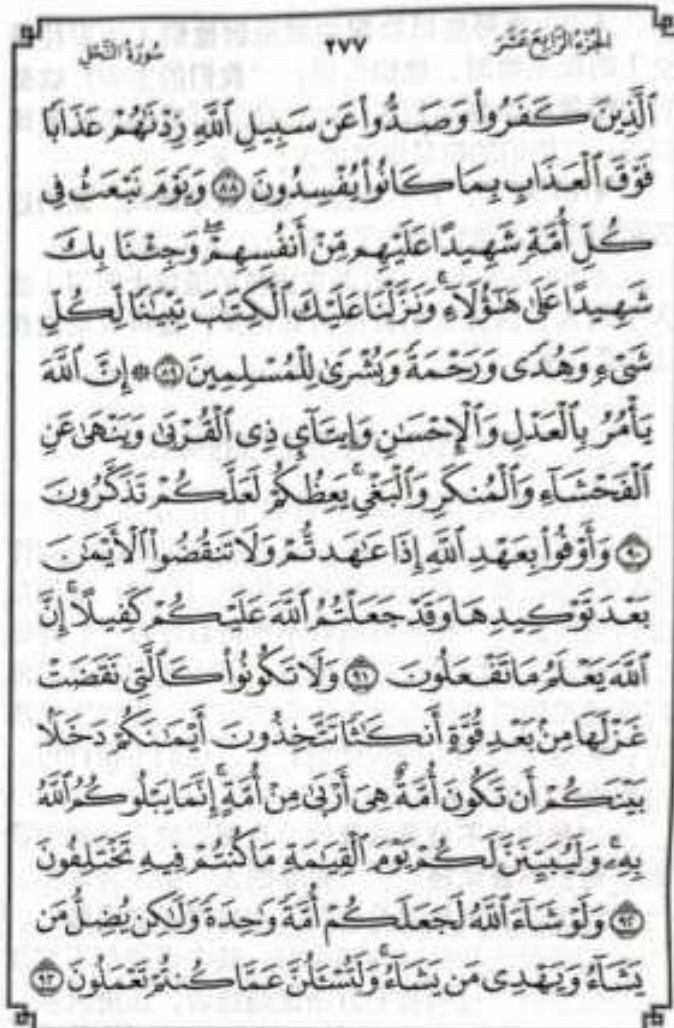 الجزء الرابع عشر ٢٧٧ سورة النحل
ٱلَّذِينَ كَفَرُوا۟ وَصَدُّوا۟ عَن سَبِيلِ ٱللَّهِ زِدْنَٰهُمْ عَذَابًا
فَوْقَ ٱلْعَذَابِ بِمَا كَانُوا۟ يُفْسِدُونَ ٨٨ وَيَوْمَ نَبْعَثُ فِى
كُلِّ أُمَّةٍ شَهِيدًا عَلَيْهِم مِّنْ أَنفُسِهِمْ ۖ وَجِئْنَا بِكَ
شَهِيدًا عَلَىٰ هَٰٓؤُلَآءِ ۚ وَنَزَّلْنَا عَلَيْكَ ٱلْكِتَٰبَ تِبْيَٰنًا لِّكُلِّ
شَىْءٍ وَهُدًى وَرَحْمَةً وَبُشْرَىٰ لِلْمُسْلِمِينَ ٨٩ ۞ إِنَّ ٱللَّهَ
يَأْمُرُ بِٱلْعَدْلِ وَٱلْإِحْسَٰنِ وَإِيتَآئِ ذِى ٱلْقُرْبَىٰ وَيَنْهَىٰ عَنِ
ٱلْفَحْشَآءِ وَٱلْمُنكَرِ وَٱلْبَغْىِ ۚ يَعِظُكُمْ لَعَلَّكُمْ تَذَكَّرُونَ
٩٠ وَأَوْفُوا۟ بِعَهْدِ ٱللَّهِ إِذَا عَٰهَدتُّمْ وَلَا تَنقُضُوا۟ ٱلْأَيْمَٰنَ
بَعْدَ تَوْكِيدِهَا وَقَدْ جَعَلْتُمُ ٱللَّهَ عَلَيْكُمْ كَفِيلًا ۚ إِنَّ
ٱللَّهَ يَعْلَمُ مَا تَفْعَلُونَ ٩١ وَلَا تَكُونُوا۟ كَٱلَّتِى نَقَضَتْ
غَزْلَهَا مِنۢ بَعْدِ قُوَّةٍ أَنكَٰثًا تَتَّخِذُونَ أَيْمَٰنَكُمْ دَخَلًۢا
بَيْنَكُمْ أَن تَكُونَ أُمَّةٌ هِىَ أَرْبَىٰ مِنْ أُمَّةٍ ۚ إِنَّمَا يَبْلُوكُمُ ٱللَّهُ
بِهِۦ ۚ وَلَيُبَيِّنَنَّ لَكُمْ يَوْمَ ٱلْقِيَٰمَةِ مَا كُنتُمْ فِيهِ تَخْتَلِفُونَ
٩٢ وَلَوْ شَآءَ ٱللَّهُ لَجَعَلَكُمْ أُمَّةً وَٰحِدَةً وَلَٰكِن يُضِلُّ مَن
يَشَآءُ وَيَهْدِى مَن يَشَآءُ ۚ وَلَتُسْـَٔلُنَّ عَمَّا كُنتُمْ تَعْمَلُونَ ٩٣